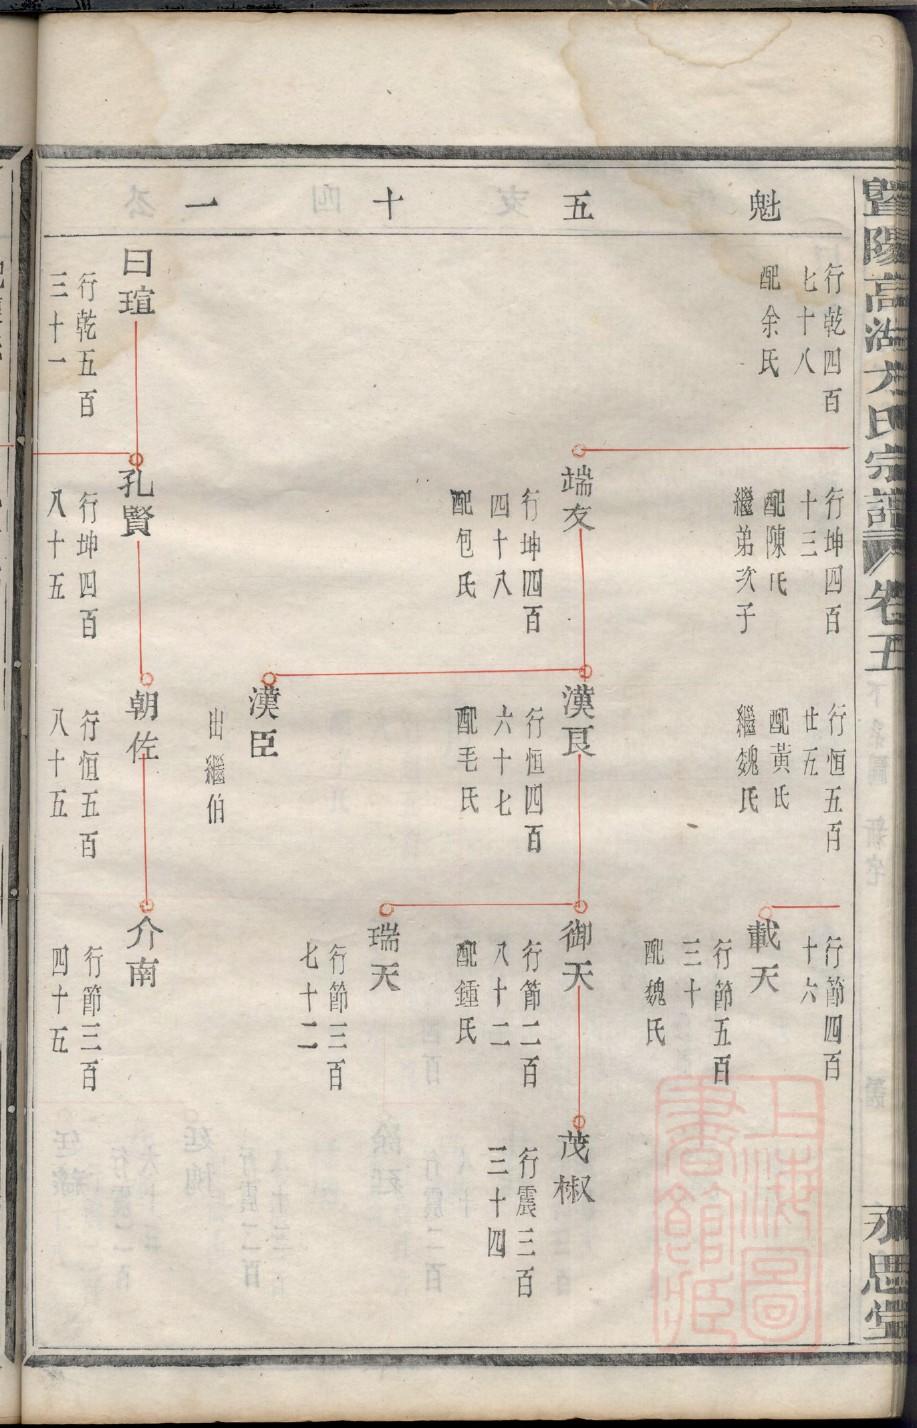 暨陽高湖方氏宗譜
卷五
永思堂
魁 五 十 一
行乾四百
七十八
配余氏
曰瑄
行乾五百
三十一
行坤四百
十三
配陳氏
繼弟次子
端友
行坤四百
四十八
配包氏
孔賢
行坤四百
八十五
行恒五百
廿五
配黃氏
繼魏氏
漢良
行恒四百
六十七
配毛氏
漢臣
出繼伯
朝佐
行恒五百
八十五
行節四百
十六
載天
行節五百
三十
配魏氏
御天
行節二百
八十二
配鍾氏
瑞天
行節三百
七十二
介南
行節三百
四十五
茂椒
行震三百
三十四